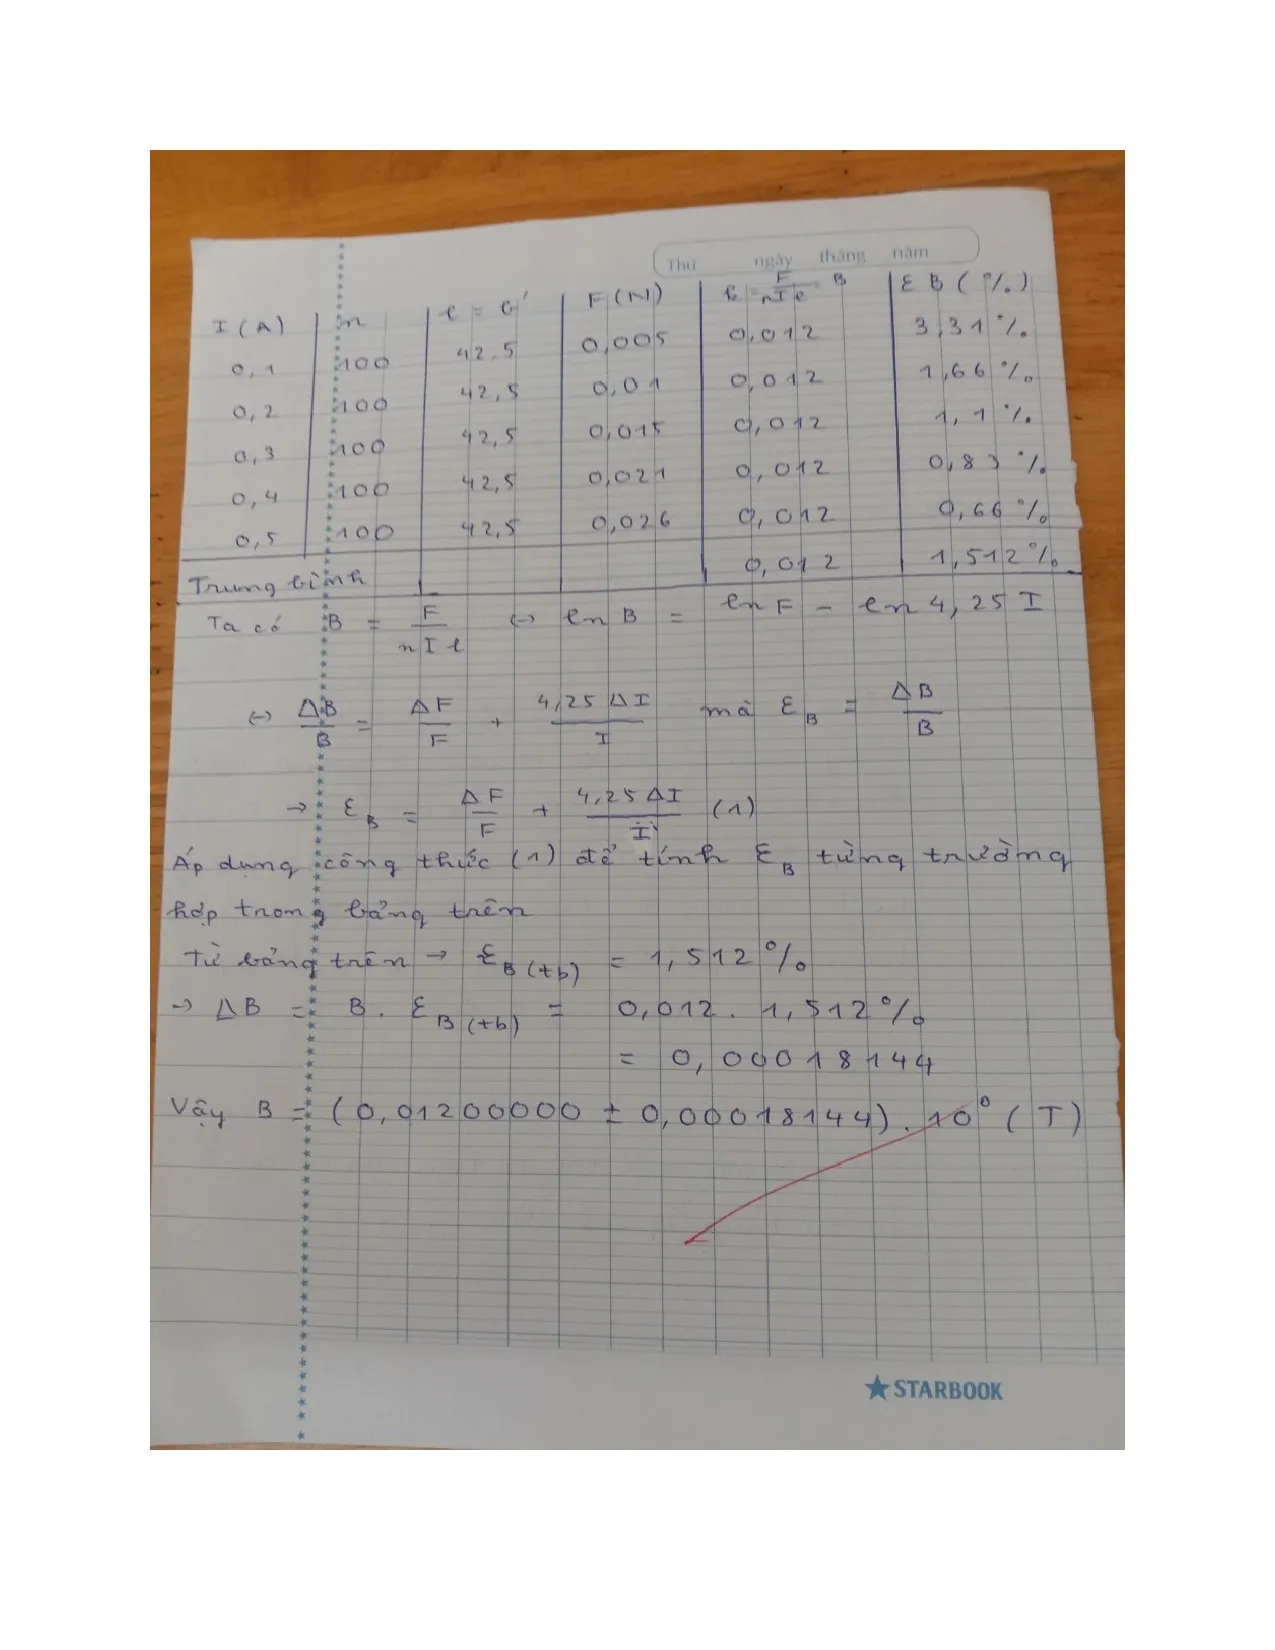 Thứ ngày tháng năm
I (A) n l = b' F (N) k = F/nIl = B ε B (%)
0,1 100 42.5 0,005 0,012 3,31%
0,2 100 42,5 0,01 0,012 1,66%
0,3 100 42,5 0,015 0,012 1,1%
0,4 100 42,5 0,021 0,012 0,83%
0,5 100 42,5 0,026 0,012 0,66%
Trung bình 0,012 1,512%
Ta có B = F/nIl ↔ ln B = ln F - ln 4,25 I
↔ ΔB/B = ΔF/F + 4,25 ΔI/I mà ε_B = ΔB/B
→ ε_B = ΔF/F + 4,25 ΔI/I (1)
Áp dụng công thức (1) để tính ε_B từng trường
hợp trong bảng trên
Từ bảng trên → ε_B (tb) = 1,512%
→ ΔB = B. ε_B (tb) = 0,012. 1,512%
= 0,00018144
Vậy B = (0,01200000 ± 0,00018144). 10⁰ (T)
STARBOOK